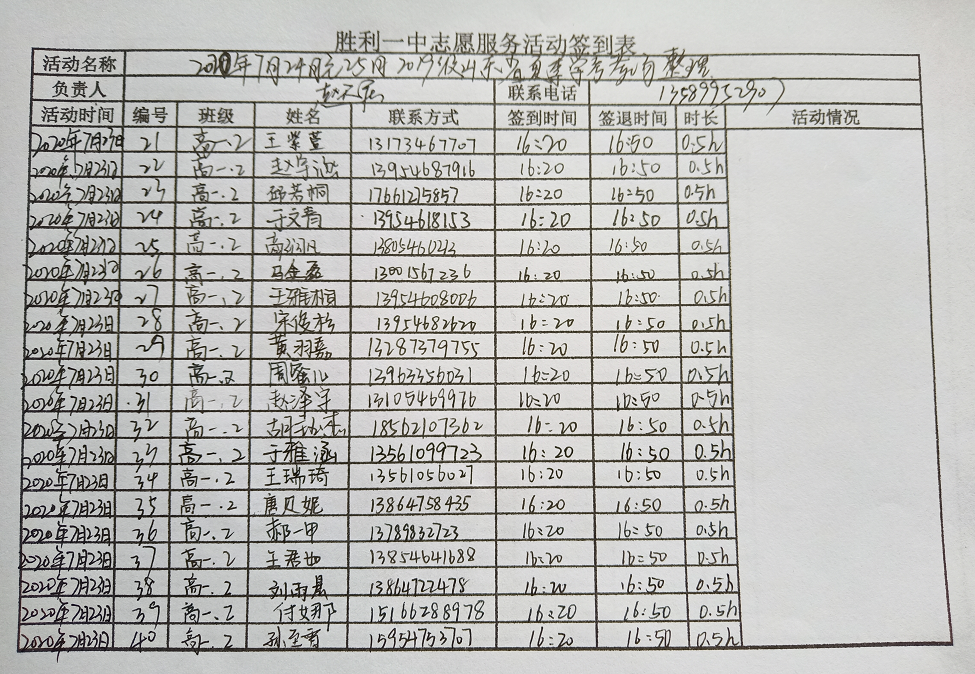 胜利一中志愿服务活动签到表
活动名称 2020年7月24日 25日 2019级山东省夏季学考考场整理
负责人 联系电话 13589952907
活动时间 编号 班级 姓名 联系方式 签到时间 签退时间 时长 活动情况
2020年7月23日 21 高一.2 王紫萱 13173467707 16:20 16:50 0.5h
2020年7月23日 22 高一.2 赵宇涵 13954687916 16:20 16:50 0.5h
2020年7月23日 23 高一.2 邱若桐 17661275857 16:20 16:50 0.5h
2020年7月23日 24 高一.2 于文青 13954618153 16:20 16:50 0.5h
2020年7月23日 25 高一.2 13805460213 16:20 16:50 0.5h
2020年7月23日 26 高一.2 马金磊 13001567236 16:20 16:50 0.5h
2020年7月23日 27 高一.2 王雅楠 13954608006 16:20 16:50 0.5h
2020年7月23日 28 高一.2 宋俊杉 13954682620 16:20 16:50 0.5h
2020年7月23日 29 高一.2 黄羽嘉 13287379755 16:20 16:50 0.5h
2020年7月23日 30 高一.2 周蜜儿 13963356031 16:20 16:50 0.5h
2020年7月23日 31 高一.2 赵泽宇 13105469976 16:20 16:50 0.5h
2020年7月23日 32 高一.2 18562107362 16:20 16:50 0.5h
2020年7月23日 33 高一.2 于雅涵 13561099723 16:20 16:50 0.5h
2020年7月23日 34 高一.2 王瑞琦 13561056027 16:20 16:50 0.5h
2020年7月23日 35 高一.2 唐贝妮 13864758435 16:20 16:50 0.5h
2020年7月23日 36 高一.2 郝一甲 13789832723 16:20 16:50 0.5h
2020年7月23日 37 高一.2 王君如 13854641688 16:20 16:50 0.5h
2020年7月23日 38 高一.2 刘雨昙 13864722478 16:20 16:50 0.5h
2020年7月23日 39 高一.2 付娜 15166288978 16:20 16:50 0.5h
2020年7月23日 40 高一.2 孙至育 15954753707 16:20 16:50 0.5h